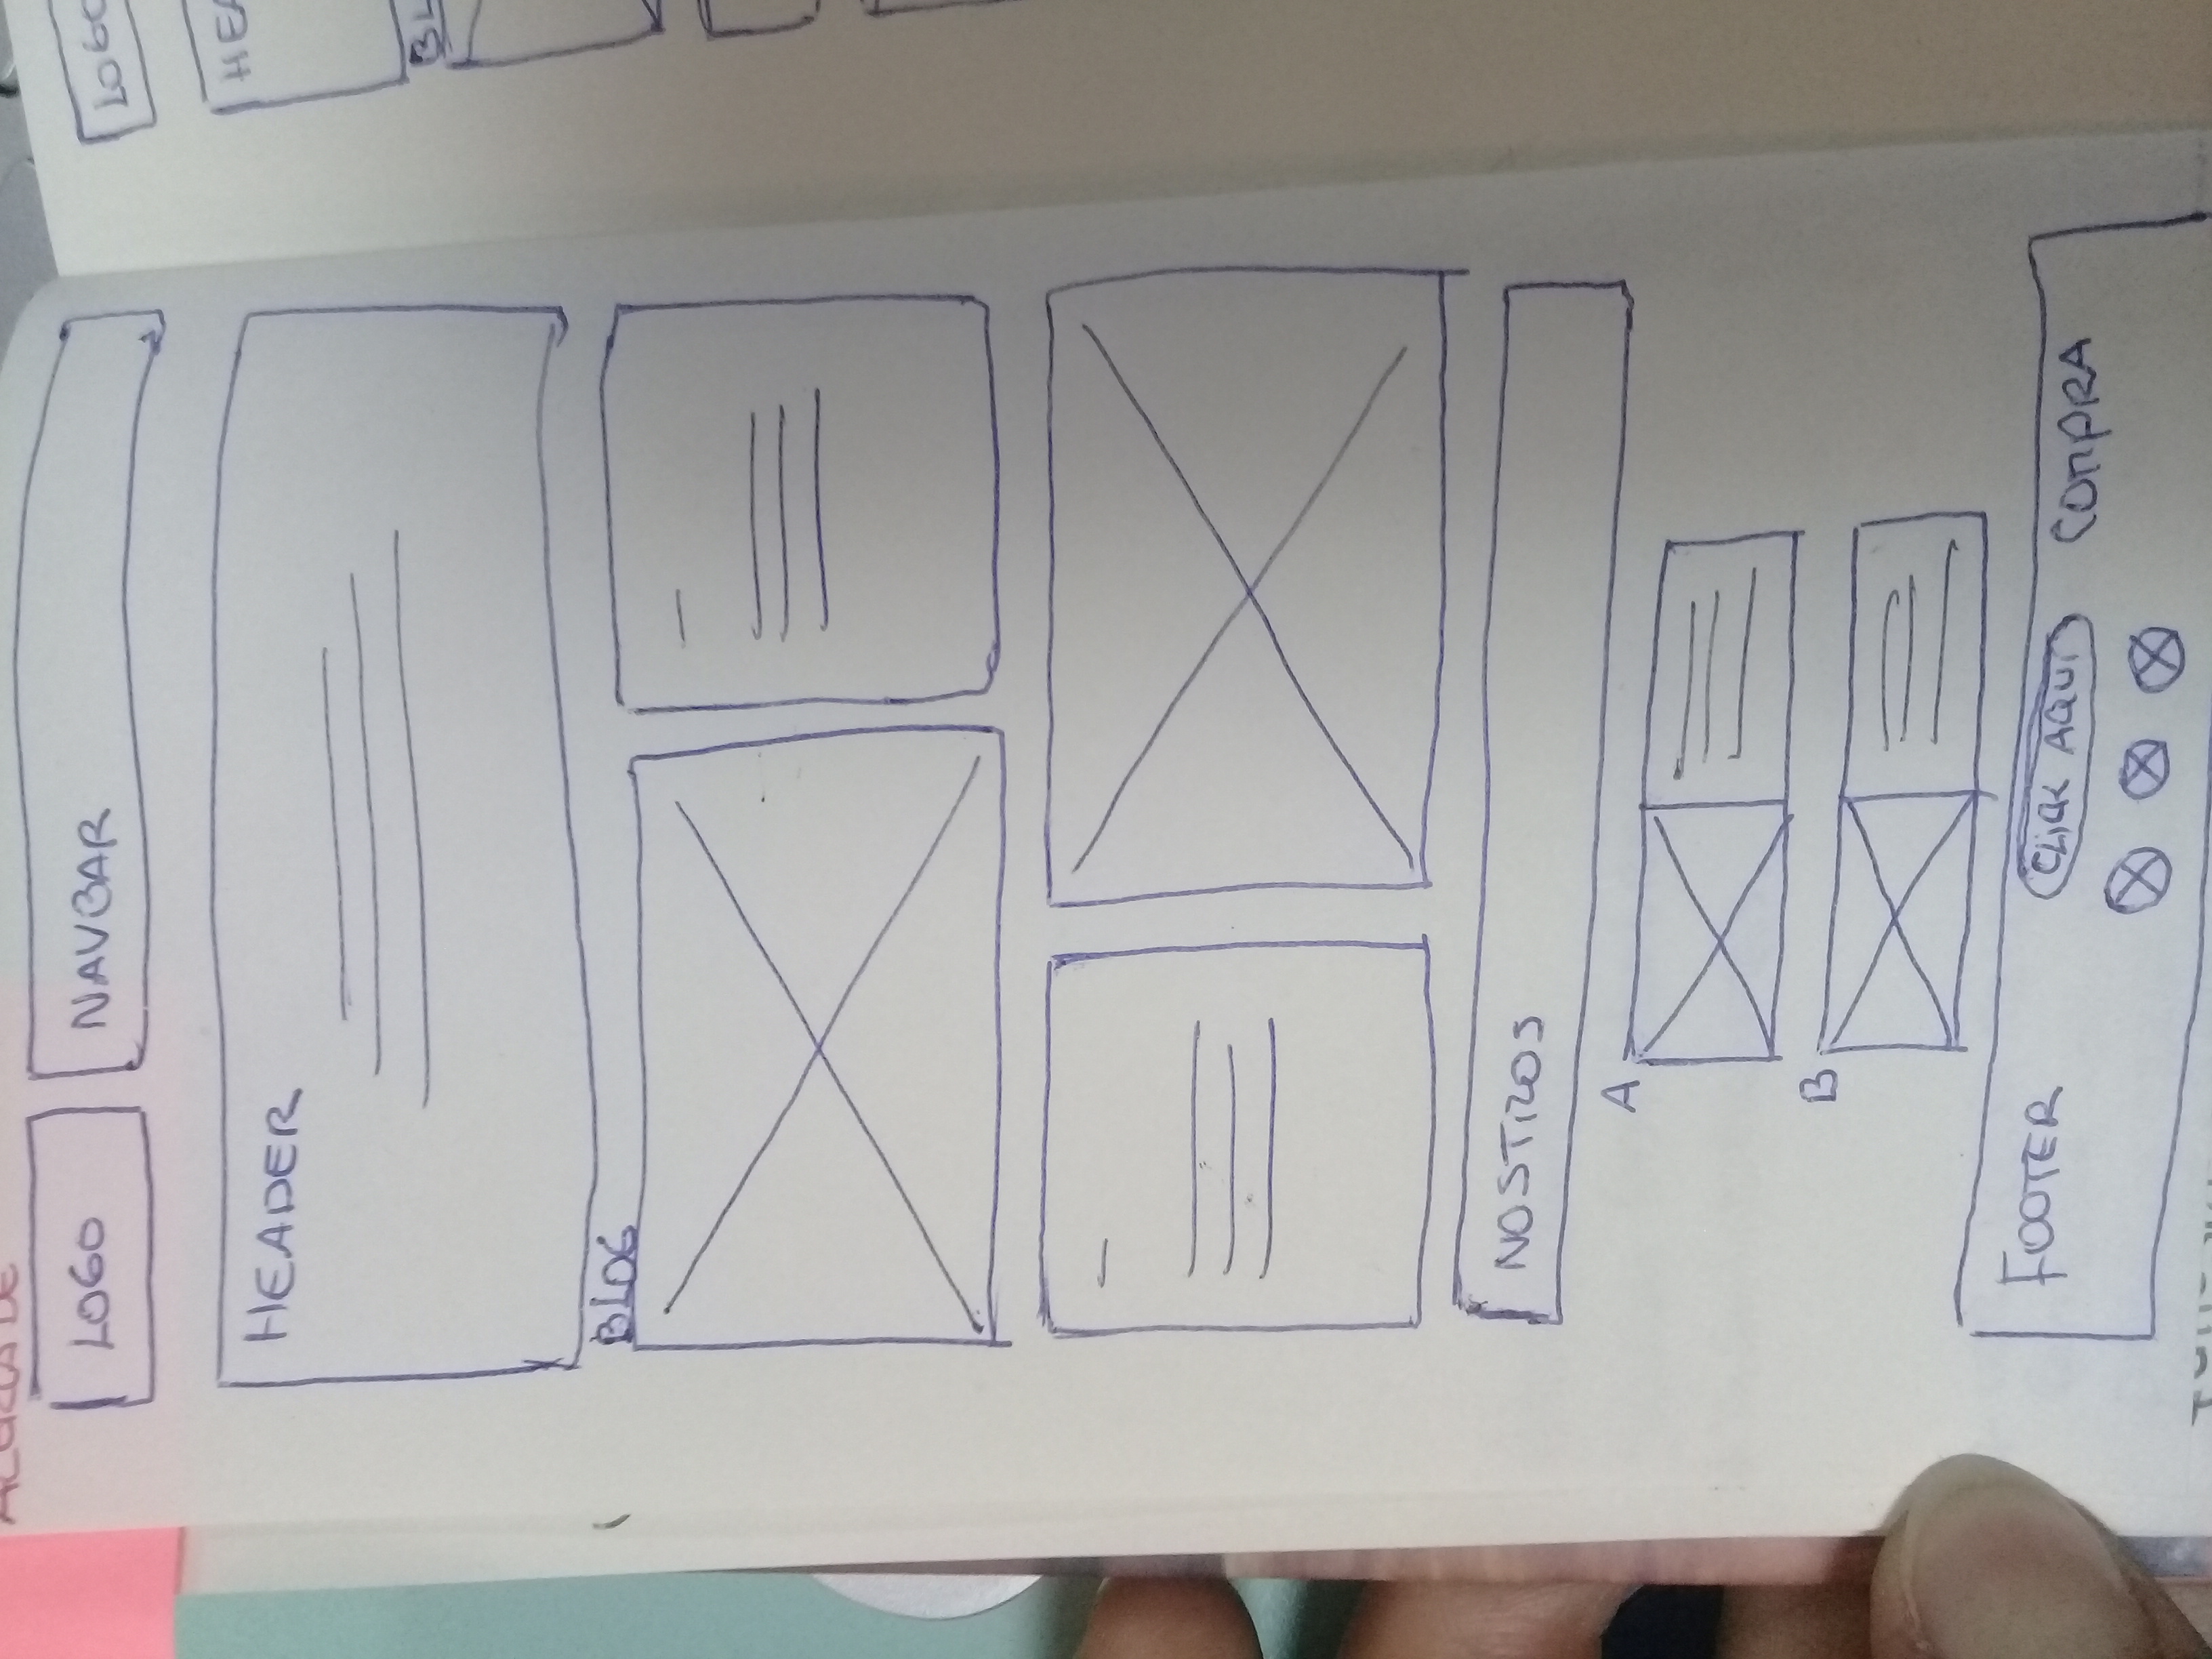 ACERCA DE
LOGO NAVBAR
HEADER
BLOG
NOSTROS
A
B
FOOTER CLICK AQUI COMPRA
LOGO
HEA
BL